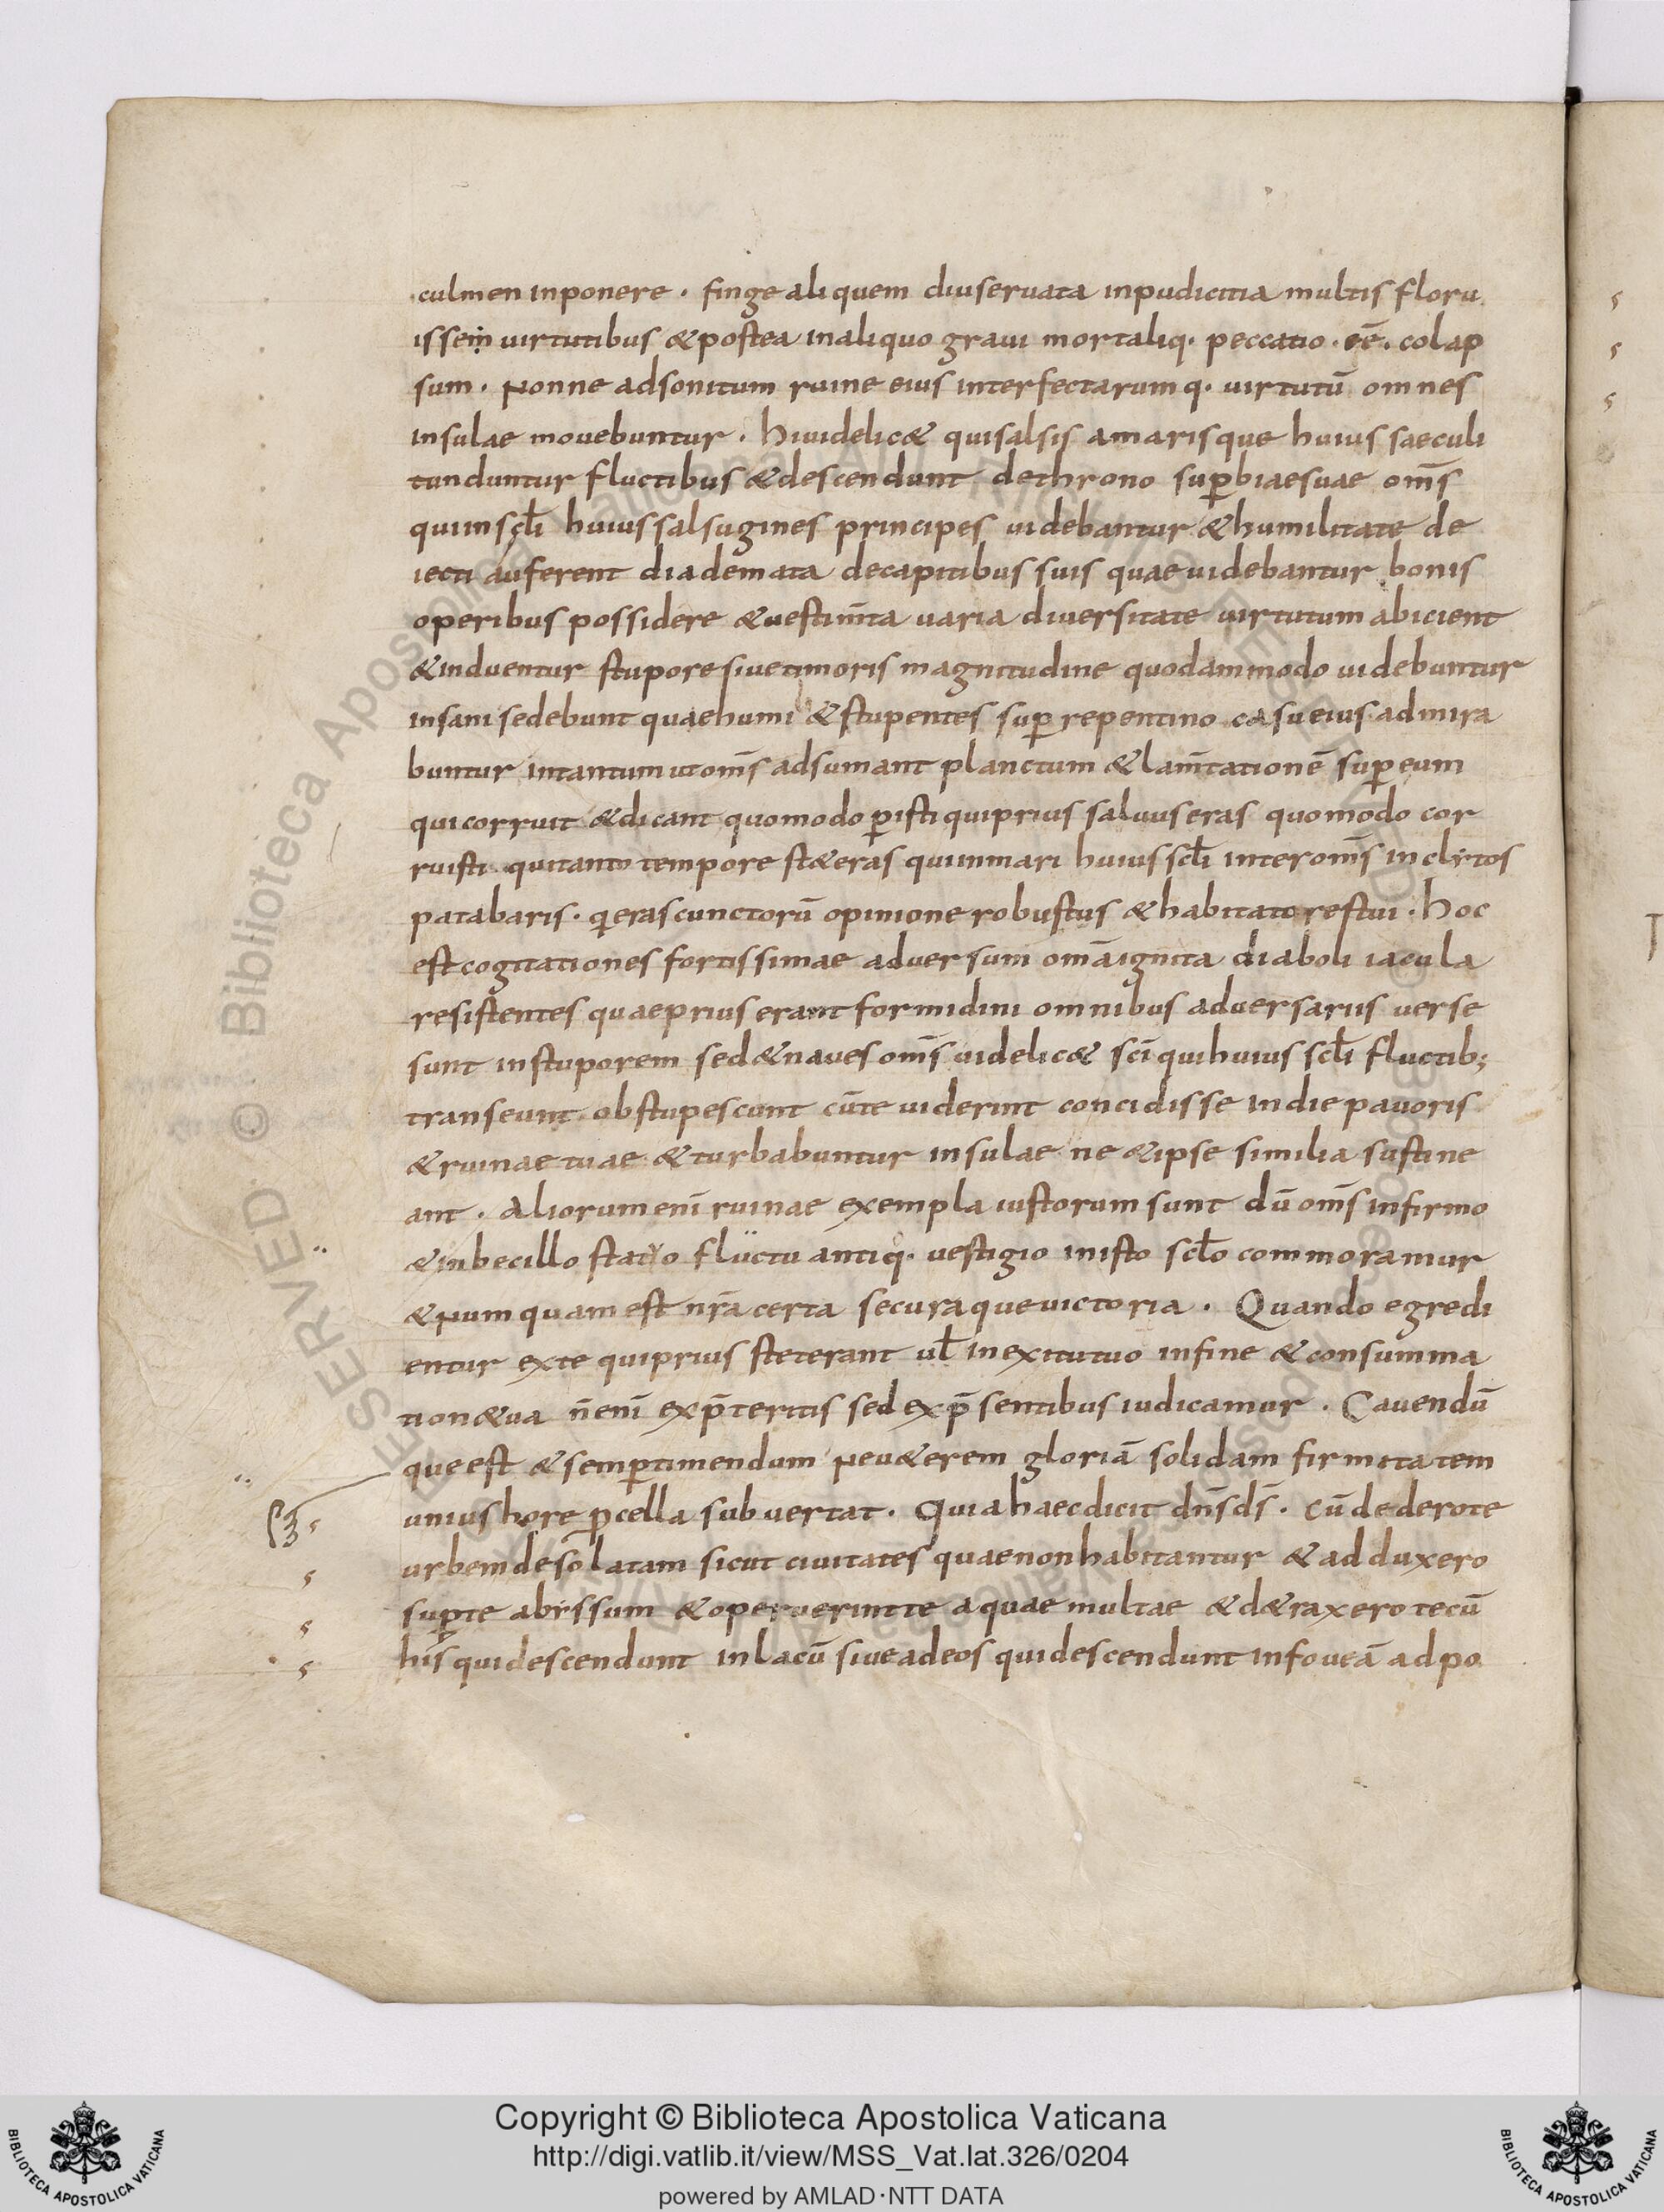 culmen inponere · finge aliquem diu seruata inpudicitia multis floru
issem uirtutibus & postea inaliquo graui mortaliq· peccatio · eē · colap
sum · Nonne adsonitum ruine eius interfectarumq· uirtutū omnes
insulae mouebuntur · hi uidelic& qui salsis amarisque huius saeculi
tunduntur fluctibus & descendunt dethrono suꝑbiae suae om̄s
qui in scł̄i huius salsugines principes uidebantur & humilitate de
iecti auferent diademata decapitibus suis quae uidebantur bonis
operibus possidere & uestim̄ta uaria diuersitate uirtutum abicient
& induentur stupore siue timoris magnitudine quodammodo uidebuntur
insani sedebunt quae humi & stupentes suꝑ repentino casu eius admira
buntur intantum ut om̄s adsumant planctum & lam̄tationē suꝑ eum
qui corruit & dicant quomodo ꝑisti qui prius saluus eras quomodo cor
ruisti qui tanto tempore st&eras qui in mari huius scł̄i inter om̄s inclytos
patabaris · q̇ eras cunctorū opinione robustus & habitatores tui · hoc
est cogitationes fortissimae aduersum om̄a ignita diaboli iacula
resistentes quae prius erant formidini omnibus aduersariis uerse
sunt in stuporem sed & naues om̄s uidelic& sc̄i qui huius scł̄i fluctib;
transeunt obstupescunt cū te uiderint concidisse in die pauoris
& ruinae tuae & turbabuntur insulae ne & ipse similia sustine
ant · Aliorum eni̅ ruinae exempla iustorum sunt dū om̄s infirmo
& inbecillo statyo fluctu antiq· uestigio inisto scł̄o commoramur
& Numquam est nr̄a certa securaque uictoria · Quando egredi
entur exte qui prius steterant uł inexitu tuo infine & consumma
tion& ua n̄ eni̅ exp̄teritis sed exp̄sentibus iudicamur · Cauendū
que est & semꝑ timendum Ne u&erem gloriā solidam firmitatem
unius hore ꝓcella subuertat · Quia haec dicit dn̄s ds̄ · Cū dedero te
urbem desolatam sicut ciuitates quae non habitantur & adduxero
suꝑ te abyssum & operuerint te aquae multae & d&raxero te cū
his qui descendunt in lacū siue adeos qui descendunt in foueā ad po
Copyright © Biblioteca Apostolica Vaticana
http://digi.vatlib.it/view/MSS_Vat.lat.326/0204
powered by AMLAD·NTT DATA
BIBLIOTECA APOSTOLICA VATICANA
BIBLIOTECA APOSTOLICA VATICANA